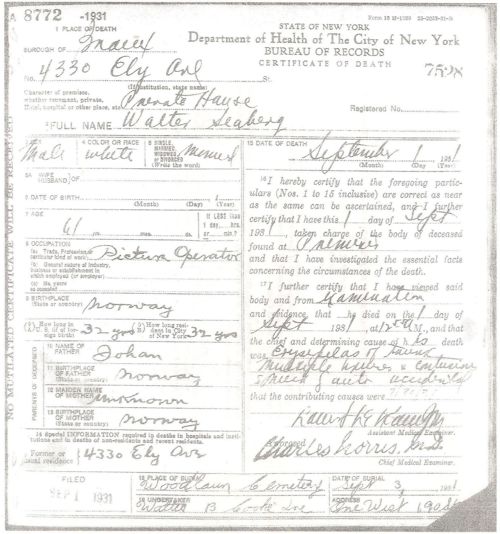 A 8772 -1931
1 PLACE OF DEATH
BOROUGH OF Bronx
No. 4330 Ely Ave St.
Character of premises, whether tenement, private, hotel, hospital or other place, etc. (If institution, state name) Private House
STATE OF NEW YORK
Department of Health of The City of New York
BUREAU OF RECORDS
CERTIFICATE OF DEATH
7528
Registered No.
FULL NAME Walter Seaberg
Male
4 COLOR OR RACE white
5 SINGLE, MARRIED, WIDOWED OR DIVORCED (Write the word) Married
5A WIFE OF HUSBAND
6 DATE OF BIRTH (Month) (Day) (Year)
7 AGE 61 yrs. mos. ds.
If LESS than 1 day, hrs. or min.?
8 OCCUPATION
(a) Trade, Profession or particular kind of work Picture Operator
(b) General nature of industry, business or establishment in which employed (or employer)
9 BIRTHPLACE (State or country) Norway
How long in U. S. (if of foreign birth) 32 yrs
How long resident in City of New York 32 yrs
PARENTS OF DECEASED
10 NAME OF FATHER Johan
11 BIRTHPLACE OF FATHER (State or country) Norway
12 MAIDEN NAME OF MOTHER Unknown
13 BIRTHPLACE OF MOTHER (State or country) Norway
14 Special INFORMATION required in deaths in hospitals and institutions and in deaths of non-residents and recent residents.
Former or usual residence 4330 Ely Ave
15 DATE OF DEATH September 1 1931
(Month) (Day) (Year)
16 I hereby certify that the foregoing particulars (Nos. 1 to 15 inclusive) are correct as near
as the same can be ascertained, and I further
certify that I have this 1 day of Sept
1931, taken charge of the body of deceased
found at Premises
and that I have investigated the essential facts
concerning the circumstances of the death.
17 I further certify that I have viewed said
body and from Examination
and evidence, that he died on the 1 day of
Sept 1931, at M., and that
the chief and determining cause of his death
was Erysipelas of
multiple
auto accident
that the contributing causes were
Assistant Medical Examiner.
Approved Charles Norris, M.D.
Chief Medical Examiner.
FILED
SEP 1 1931
18 PLACE OF BURIAL Woodlawn Cemetery
DATE OF BURIAL Sept 3, 1931
19 UNDERTAKER Walter B Cooke Inc
ADDRESS One West 190
NO MUTILATED CERTIFICATE WILL BE RECEIVED